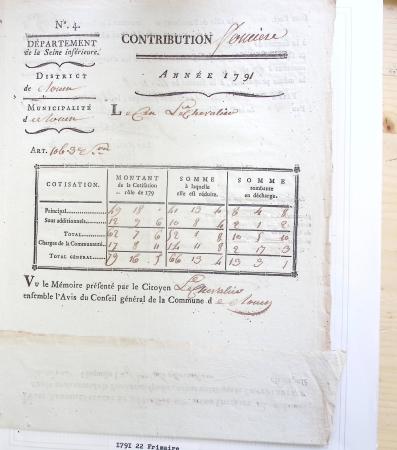 N°. 4.
DÉPARTEMENT
de la Seine inférieure.
CONTRIBUTION foncière
DISTRICT
de Rouen
ANNÉE 1791
MUNICIPALITÉ
de Rouen
Le Cen Le Chevalier
ART. 1063 2e Son
COTISATION. MONTANT de la Cotisation rôle de 179 SOMME à laquelle elle est réduite. SOMME tombante en décharge.
Principal 49 18 - 41 13 4 8 4 8
Sous additionnels 12 9 6 10 8 4 2 1 2
TOTAL 62 7 6 52 1 8 10 5 10
Charges de la Communauté 17 8 11 14 11 8 2 17 3
TOTAL général 79 16 5 66 13 4 13 3 1
Vu le Mémoire présenté par le Citoyen Le Chevalier
ensemble l'Avis du Conseil général de la Commune de Rouen
1791 22 Frimaire